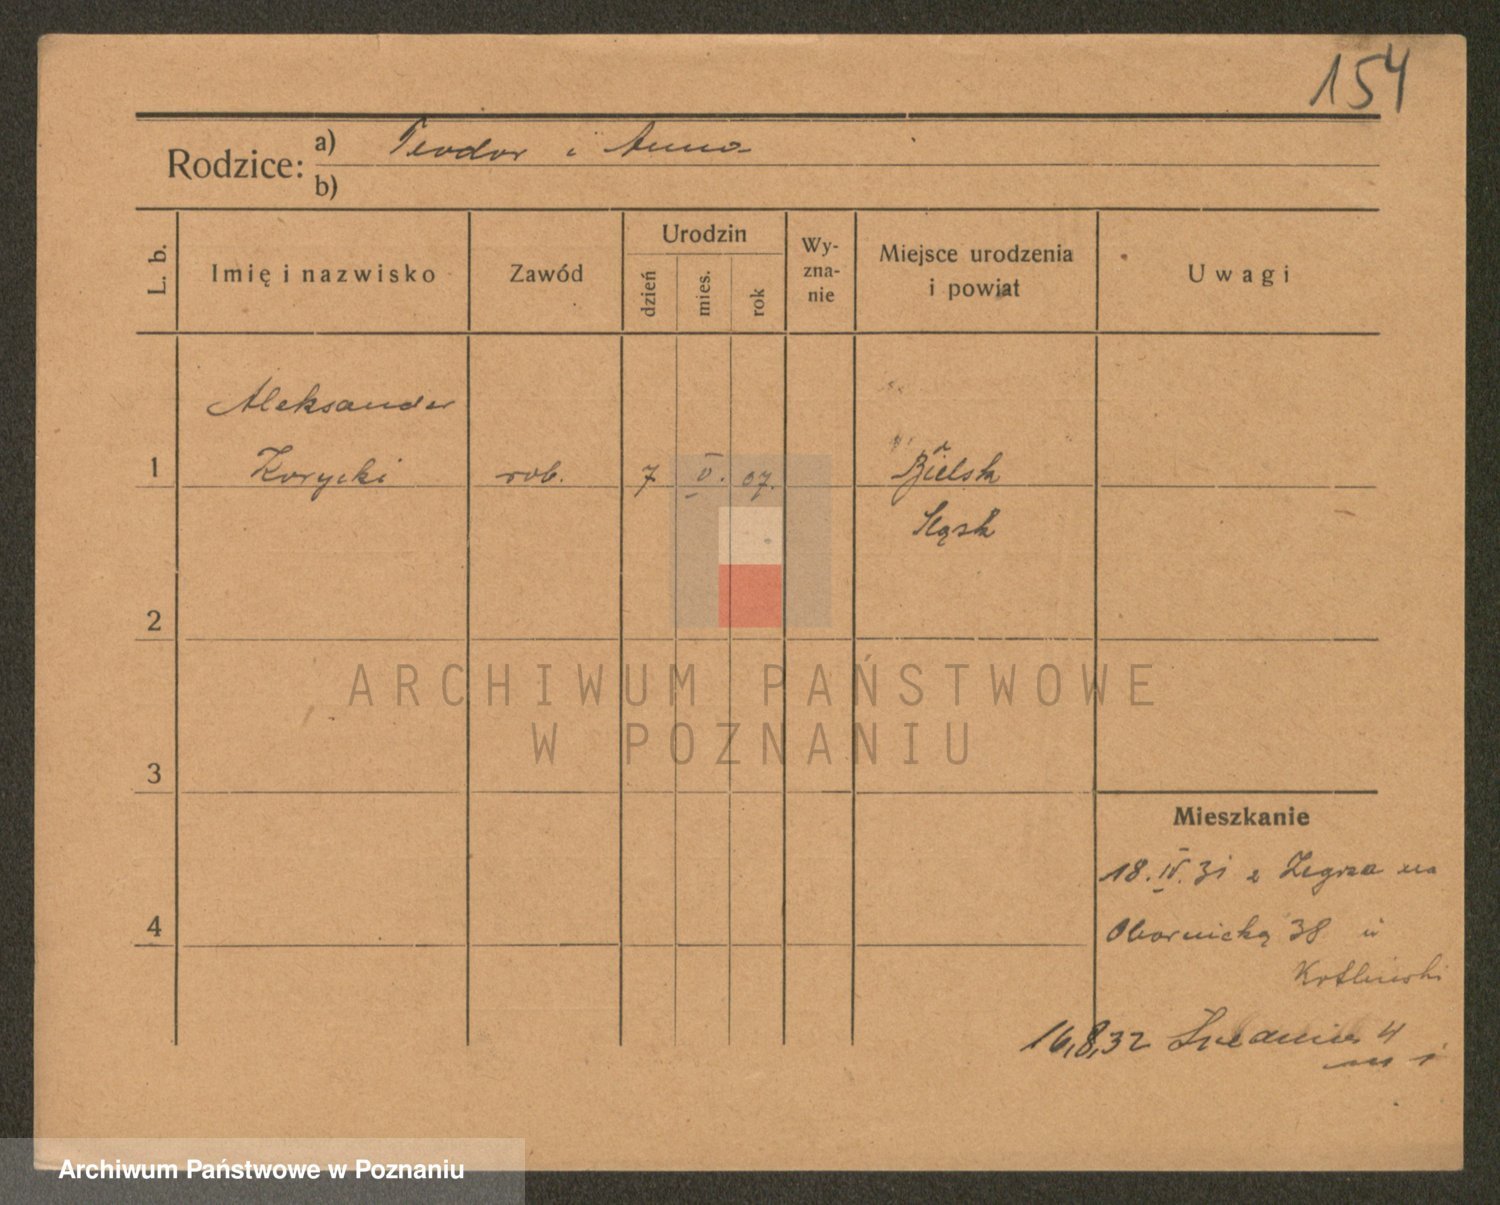 154
Rodzice: a) Teodor i Anna
b)
L. b.
Imię i nazwisko
Zawód
Urodzin
dzień
mies.
rok
Wy-
zna-
nie
Miejsce urodzenia
i powiat
Uwagi
Aleksander
1 Korycki rob. 7 V. 07. Bielsk
Śląsk
2
3
4
Mieszkanie
18.IV.31 z Zegrza na
Obornicką 38 u
16,8,32 4
m 1
ARCHIWUM PAŃSTWOWE
W POZNANIU
Archiwum Państwowe w Poznaniu